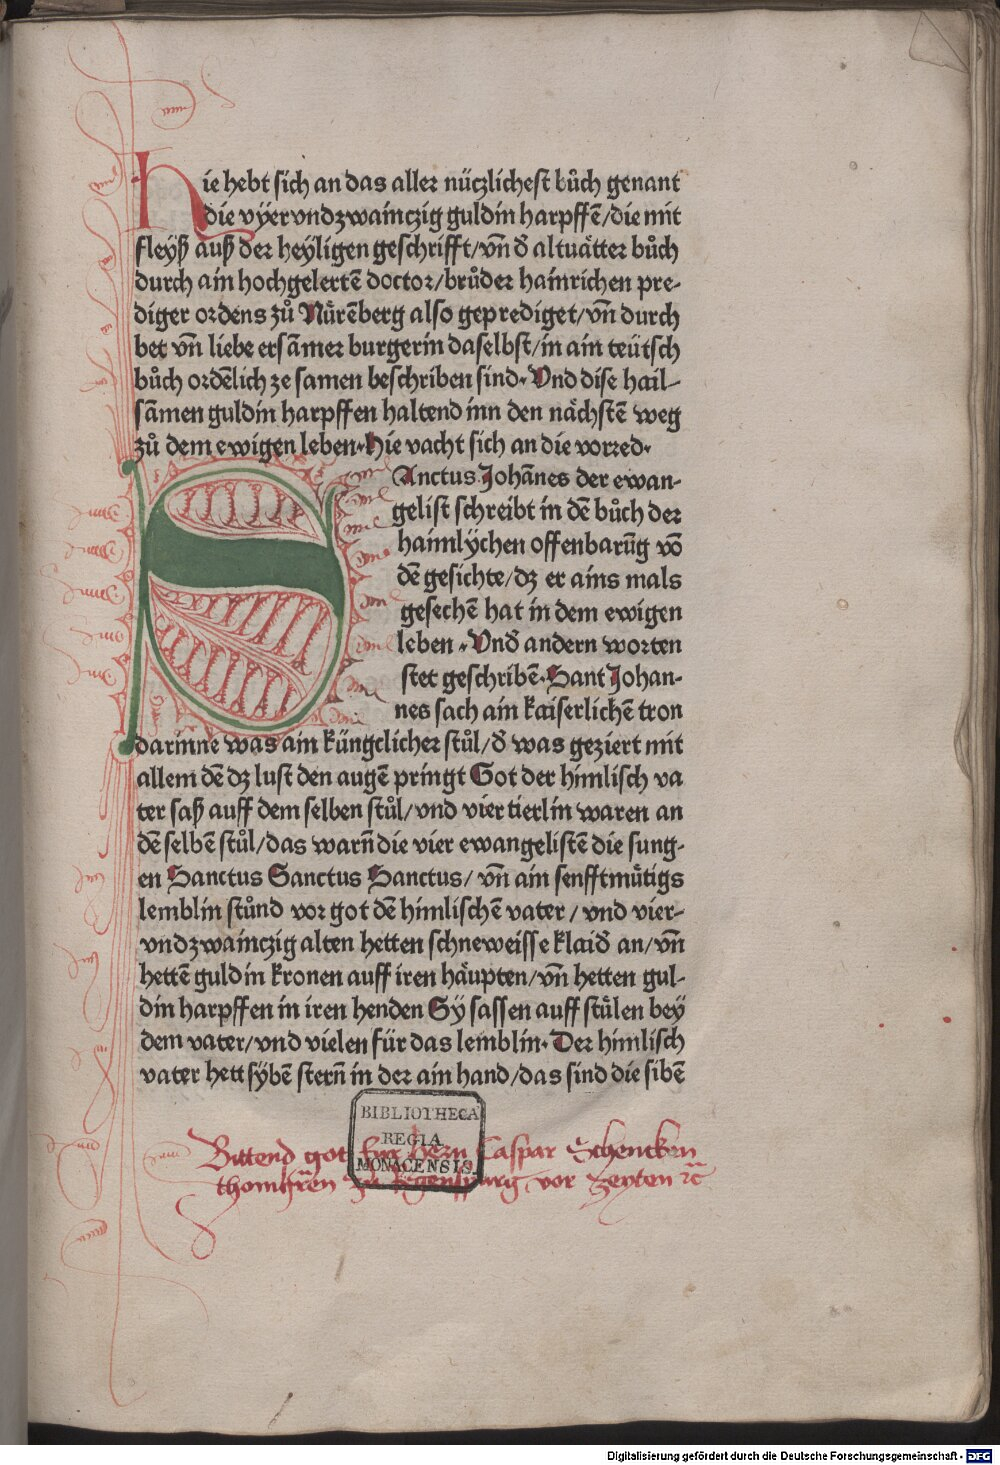 Hie hebt sich an das aller nüczlichest bůch genant
die vÿer vnd zwainczig guldin harpffē/die mit
fleÿß auß der heÿligen geschrifft/vn̄ d̕ altuätter bůch
durch ain hochgelertē doctor/brůder hainrichen pre-
diger ordens zů Nürēberg also geprediget/vn̄ durch
bet vn̄ liebe ersāmer burgerin daselbst/in ain teütsch
bůch ordēlich ze samen beschriben sind. Vnd dise hail-
sāmen guldin harpffen haltend inn den nächstē weg
zů dem ewigen leben. Hie vacht sich an die vorred.
SAnctus Johānes der ewan-
gelist schreibt in dē bůch der
haimlÿchen offenbarūg vō
dē gesichte/dz er ains mals
gesechē hat in dem ewigen
leben. Vnd̕ andern worten
stet geschribē. Sant Johan-
nes sach ain kaiserlichē tron
darinne was ain küngclicher stůl/d̕ was geziert mit
allem dē dz lust den augē pringt Got der himlisch va
ter saß auff dem selben stůl/vnd vier tierlin waren an
dē selbē stůl/das warn̄ die vier ewangelistē die sung-
en Sanctus Sanctus Sanctus/ vn̄ ain senfftmütigs
lemblin stůnd vor got dē himlischē vater/ vnd vier-
vnd zwainczig alten hetten schneweisse klaid̕ an/vn̄
hettē guldin kronen auff iren häupten/vn̄ hetten gul-
din harpffen in iren henden Sÿ sassen auff stülen beÿ
dem vater/vnd vielen für das lemblin. Der himlisch
vater hett sÿbē stern̄ in der ain hand/das sind die sibē
BIBLIOTHECA
REGIA
MONACENSIS.
Bittend got für hern Caspar Schencken
thomhr̄en zu Regenspurg vor Zeyten ꝛc̄
Digitalisierung gefördert durch die Deutsche Forschungsgemeinschaft - DFG